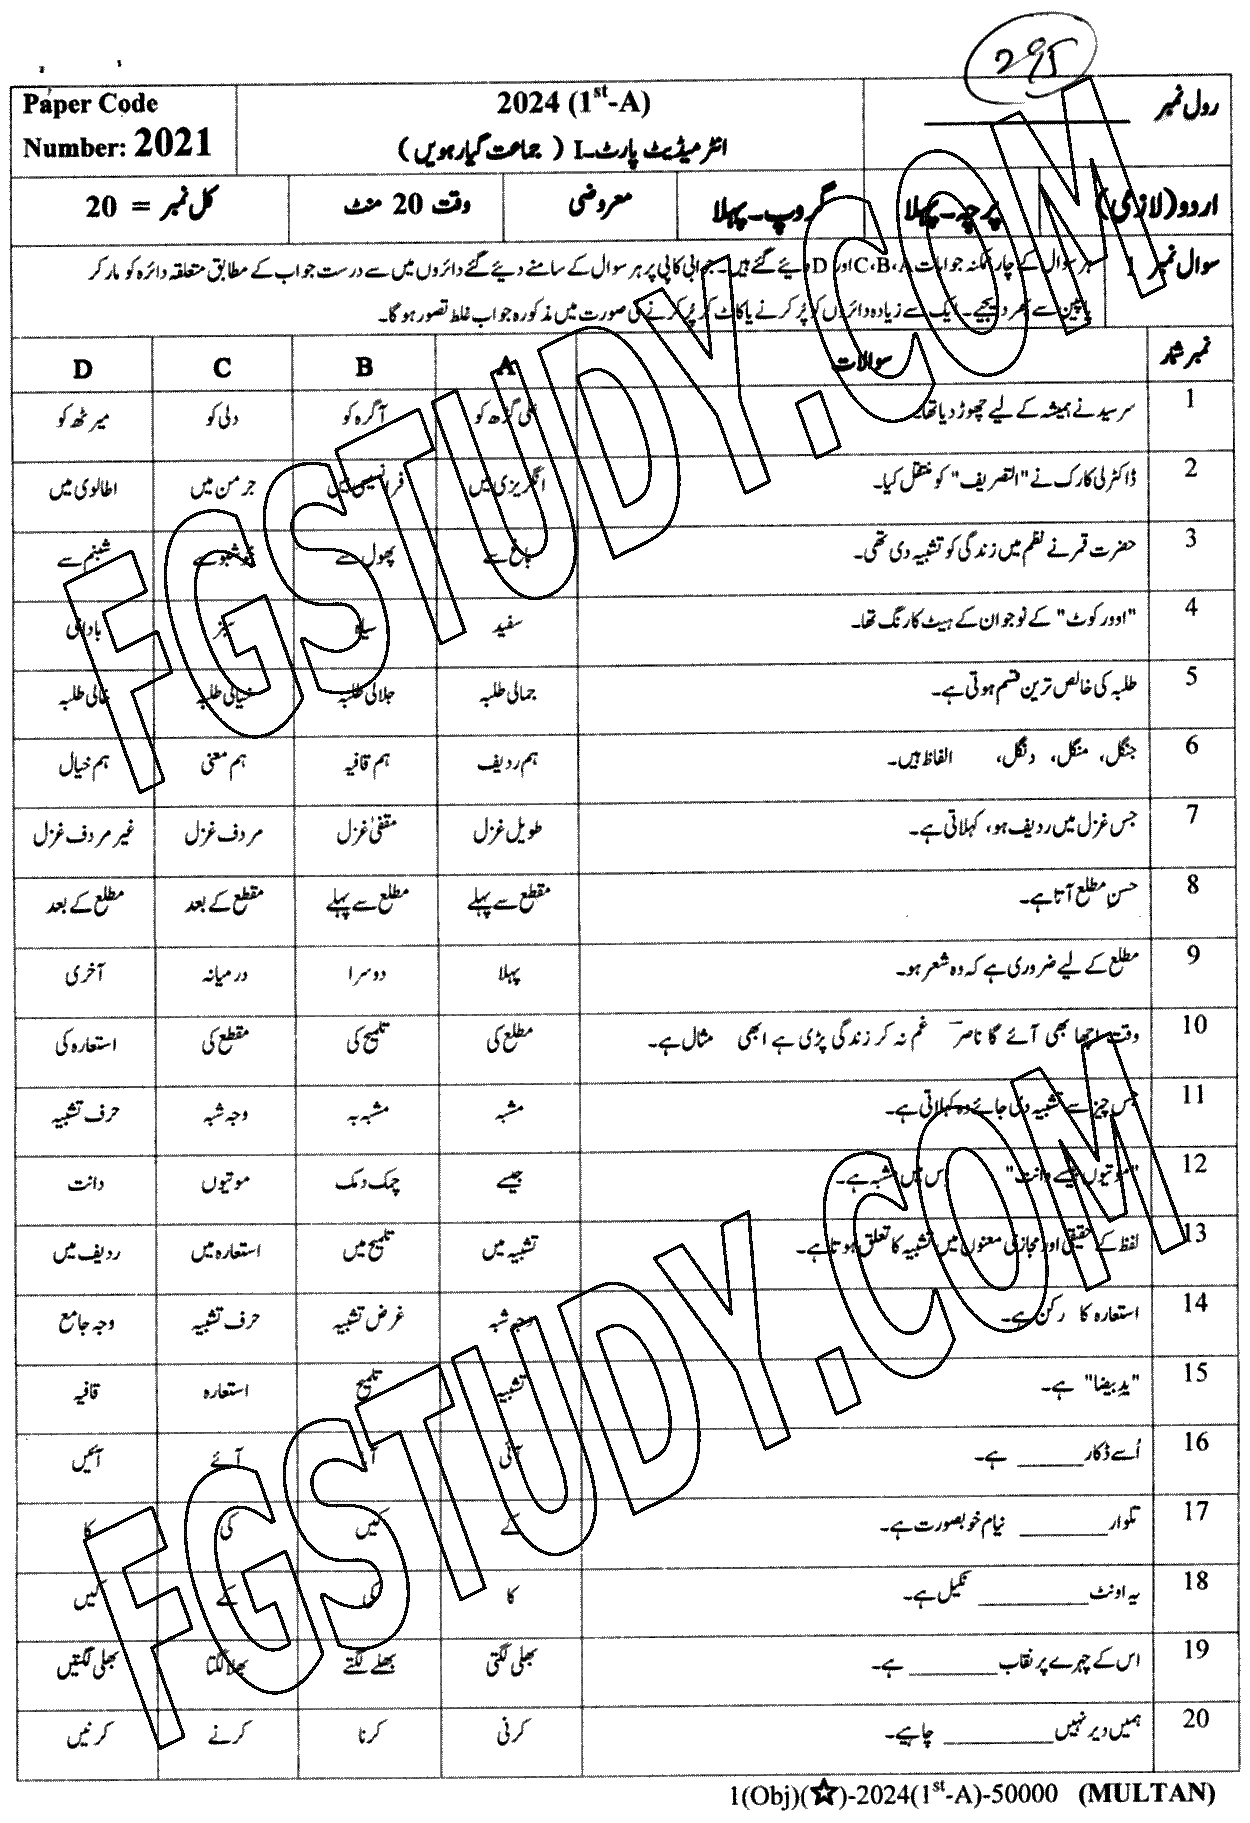 295
Paper Code
Number: 2021
2024 (1st-A)
انٹرمیڈیٹ پارٹ-I ( جماعت گیارہویں )
رول نمبر ________
اردو (لازمی) پرچہ - پہلا گروپ - پہلا معروضی وقت 20 منٹ کل نمبر = 20
سوال نمبر 1 ہر سوال کے چار ممکنہ جوابات A، B، C اور D دیئے گئے ہیں۔ جوابی کاپی پر ہر سوال کے سامنے دیئے گئے دائروں میں سے درست جواب کے مطابق متعلقہ دائرہ کو مارکر
یا پین سے بھر دیجیے۔ ایک سے زیادہ دائروں کو پُر کرنے یا کاٹ کر پُر کرنے کی صورت میں مذکورہ جواب غلط تصور ہو گا۔
نمبر شمار سوالات A B C D
1 سرسید نے ہمیشہ کے لیے چھوڑ دیا تھا۔ علی گڑھ کو آگرہ کو دلی کو میرٹھ کو
2 ڈاکٹر لی کارک نے "التصریف" کو منتقل کیا۔ انگریزی میں فرانسیسی میں جرمن میں اطالوی میں
3 حضرت قمر نے نظم میں زندگی کو تشبیہ دی تھی۔ باغ سے پھول سے خوشبو سے شبنم سے
4 "اوور کوٹ" کے نوجوان کے ہیٹ کا رنگ تھا۔ سفید سیاہ سبز بادامی
5 طلبہ کی خالص ترین قسم ہوتی ہے۔ جمالی طلبہ جلالی طلبہ خیالی طلبہ خالی طلبہ
6 جنگل، منگل، دنگل، الفاظ ہیں۔ ہم ردیف ہم قافیہ ہم معنی ہم خیال
7 جس غزل میں ردیف ہو، کہلاتی ہے۔ طویل غزل مقفیٰ غزل مردف غزل غیر مردف غزل
8 حسنِ مطلع آتا ہے۔ مقطع سے پہلے مطلع سے پہلے مقطع کے بعد مطلع کے بعد
9 مطلع کے لیے ضروری ہے کہ وہ شعر ہو۔ پہلا دوسرا درمیانہ آخری
10 وقت اچھا بھی آئے گا ناصر غم نہ کر زندگی پڑی ہے ابھی مثال ہے۔ مطلع کی تلمیح کی مقطع کی استعارہ کی
11 جس چیز سے تشبیہ دی جائے وہ کہلاتی ہے۔ مشبہ مشبہ بہ وجہ شبہ حرف تشبیہ
12 "موتیوں جیسے دانت" اس میں مشبہ ہے۔ جیسے چمک دمک موتیوں دانت
13 لفظ کے حقیقی اور مجازی معنوں میں تشبیہ کا تعلق ہوتا ہے۔ تشبیہ میں تلمیح میں استعارہ میں ردیف میں
14 استعارہ کا رکن ہے۔ وجہ شبہ غرض تشبیہ حرف تشبیہ وجہ جامع
15 "یدِ بیضا" ہے۔ تشبیہ تلمیح استعارہ قافیہ
16 اُسے ڈکار ______ ہے۔ آئی آیا آئے آئیں
17 تلوار ________ نیام خوبصورت ہے۔ کے کیں کی کا
18 یہ اونٹ __________ نکیل ہے۔ کا کی کے کیں
19 اس کے چہرے پر نقاب ________ ہے۔ بھلی لگتی بھلے لگتے بھلا لگتا بھلی لگتیں
20 ہمیں دیر نہیں __________ چاہیے۔ کرنی کرنا کرنے کرنیں
1(Obj)(☆)-2024(1st-A)-50000 (MULTAN)
FGSTUDY.COM
FGSTUDY.COM